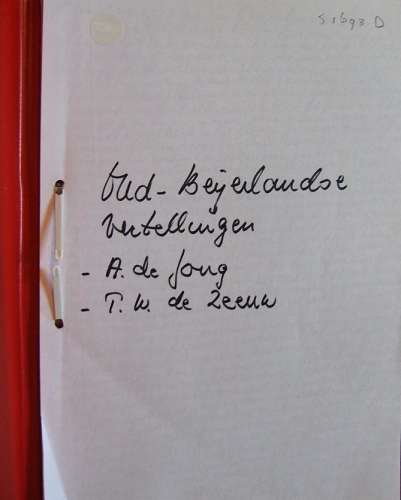 S 1693 D
Oud-Beijerlandse
vertellingen
- A. de Jong
- T. W. de Zeeuw